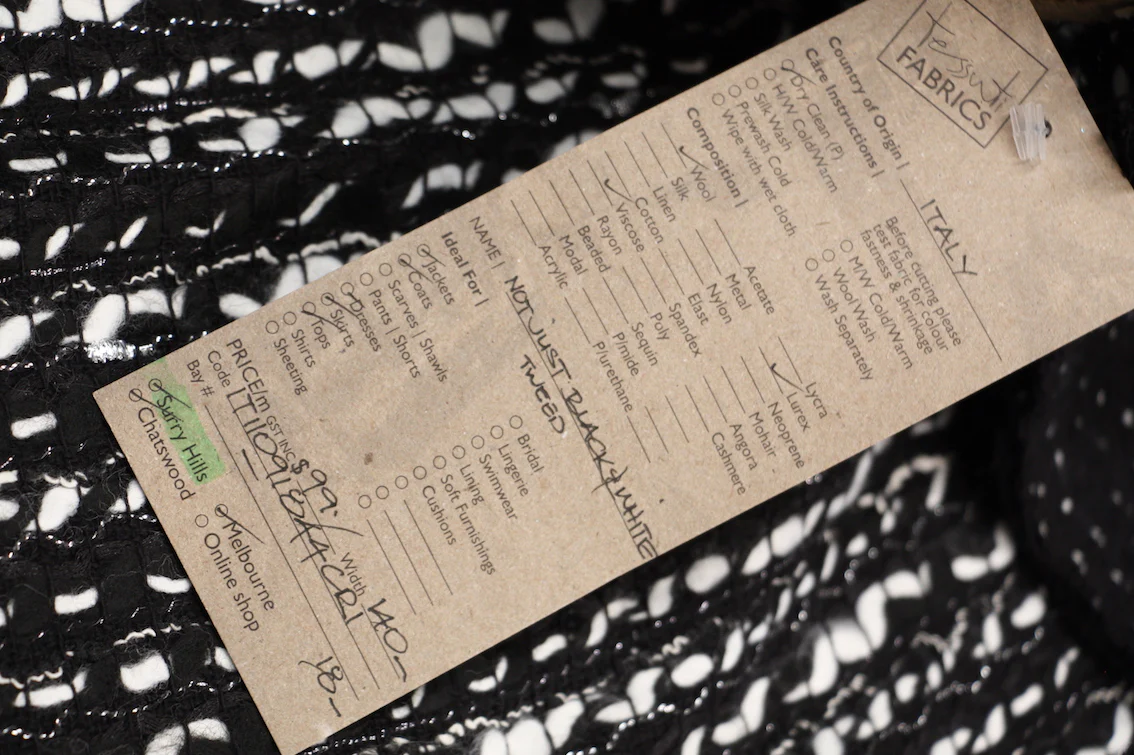 Tessuti
FABRICS
Country of Origin | ITALY
Care Instructions |
Dry Clean (P)
H/W Cold/Warm
Silk Wash
Prewash Cold
Wipe with wet cloth
Before cutting please
test fabric for colour
fastness & shrinkage
M/W Cold/Warm
Wool Wash
Wash Separately
Composition |
Wool
Silk
Linen
Cotton
Viscose
Rayon
Beaded
Modal
Acrylic
Acetate
Metal
Nylon
Elast
Spandex
Poly
Sequin
P/mide
P/urethane
Lycra
Lurex
Neoprene
Mohair
Angora
Cashmere
NAME | NOT JUST BLACK & WHITE
TWEED
Ideal For |
Jackets
Coats
Scarves | Shawls
Pants | Shorts
Dresses
Skirts
Tops
Shirts
Sheeting
Bridal
Lingerie
Swimwear
Lining
Soft Furnishings
Cushions
PRICE/m GST INC $99. Width 140-
Code
Bay # 18-
Surry Hills
Chatswood
Melbourne
Online shop